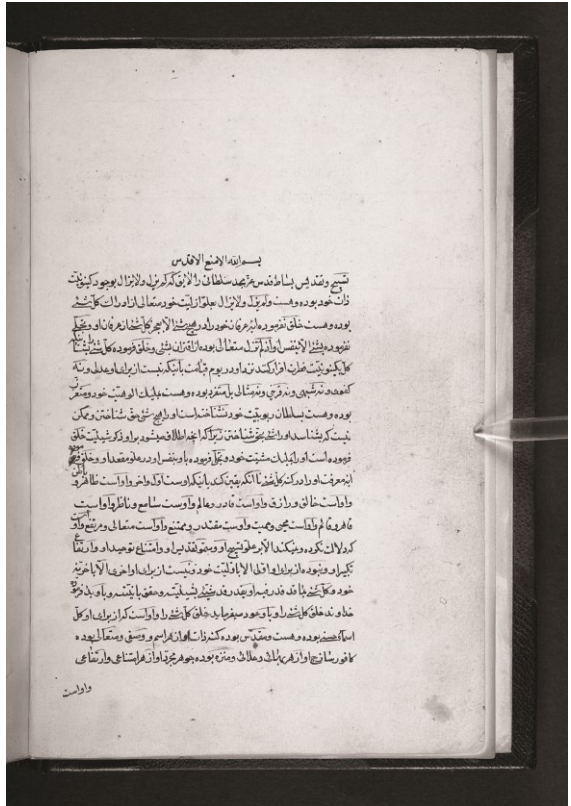 بسم الله الامنع الاقدس
تسبیح و تقدیس بساط قدس عز مجد سلطانی را لایق که لم یزل و لا یزال بوجود کینونیت
ذات خود بوده و هست و لم یزل و لا یزال بعلو ازلیت خود متعالی از ادراک کل شئ
بوده و هست خلق نفرموده ایه عرفان خود را در هیچ شئ الا بعجز کل شئ از عرفان او و تجلی
نفرموده بشئ الا بنفس او اذ لم یزل متعالی بوده از اقتران بشئ و خلق فرموده کل شئ بشأنیکه
کل بکینونیت فطرت اقرار کنند نزد او در یوم قیامت باینکه نیست از برای او عدلی و نه
کفوی و نه شبهی و نه قرینی و نه مثالی بل متفرد بوده و هست بملیک الوهیت خود و متعزز
بوده و هست بسلطان ربوبیت خود نشناخته است او را هیچ شئ حق شناختن و ممکن
نیست که بشناسد او را شئ بحق شناختن زیرا که انچه اطلاق میشود بر او ذکر شیئیت خلق
فرموده است او را بملیک مشیت خود و تجلی فرموده باو بنفس او در علو مقعد او و خلق فرموده
ایه معرفت او را در کنه کل شئ تا انکه یقین کند باینکه اوست اول و اوست اخر و اوست ظاهر و
اوست باطن و اوست خالق و رازق و اوست قادر و عالم و اوست سامع و ناظر و اوست
قاهر و قائم و اوست محیی و ممیت و اوست مقتدر و ممتنع و اوست متعالی و مرتفع و اوست
که دلالت نکرده و نمیکند الا بر علو تسبیح او و سمو تقدیس او و امتناع توحید او و ارتفاع
تکبیر او و نبوده از برای او اولی الا باولیت خود و نیست از برای او اخری الا باخریت
خود و کل شئ بما قدر فیه او یقدر قد شیئ بشیئیته و حقق بانیته و باو بدء فرموده
خداوند خلق کل شئ را و باو عود میفرماید خلق کل شئ را و اوست که از برای او کل
اسماء حسنی بوده و هست و مقدس بوده کنه ذات او از هر اسم و وصفی و متعالی بوده
کافور ساذج او از هر بهائی و علائی و منزه بوده جوهر مجرد او از هر امتناعی و ارتفاعی
و اوست